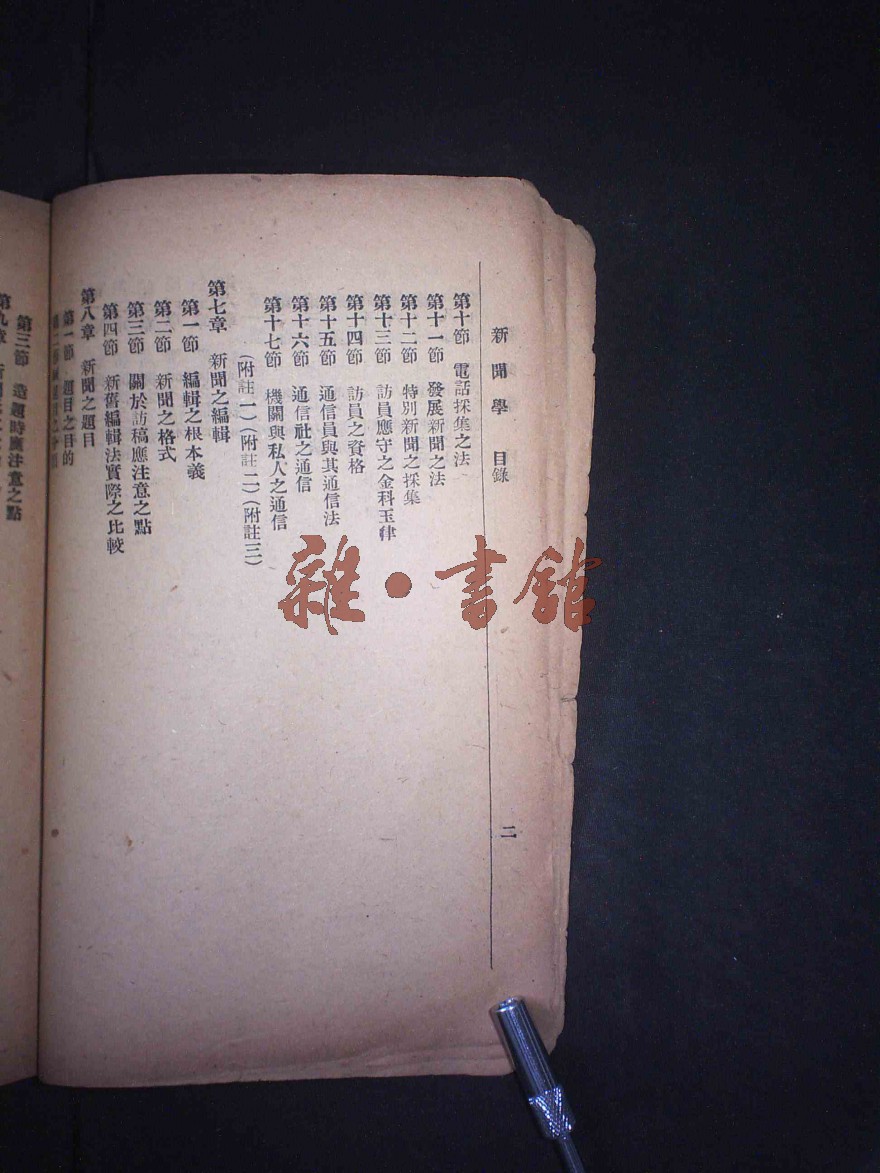 新聞學 目錄
二
第十節 電話採集之法
第十一節 發展新聞之法
第十二節 特別新聞之採集
第十三節 訪員應守之金科玉律
第十四節 訪員之資格
第十五節 通信員與其通信法
第十六節 通信社之通信
第十七節 機關與私人之通信
(附註一)(附註二)(附註三)
第七章 新聞之編輯
第一節 編輯之根本義
第二節 新聞之格式
第三節 關於訪稿應注意之點
第四節 新舊編輯法實際之比較
第八章 新聞之題目
第一節 題目之目的
第二節
第三節 造題時應注意之點
第九章
雜·書館